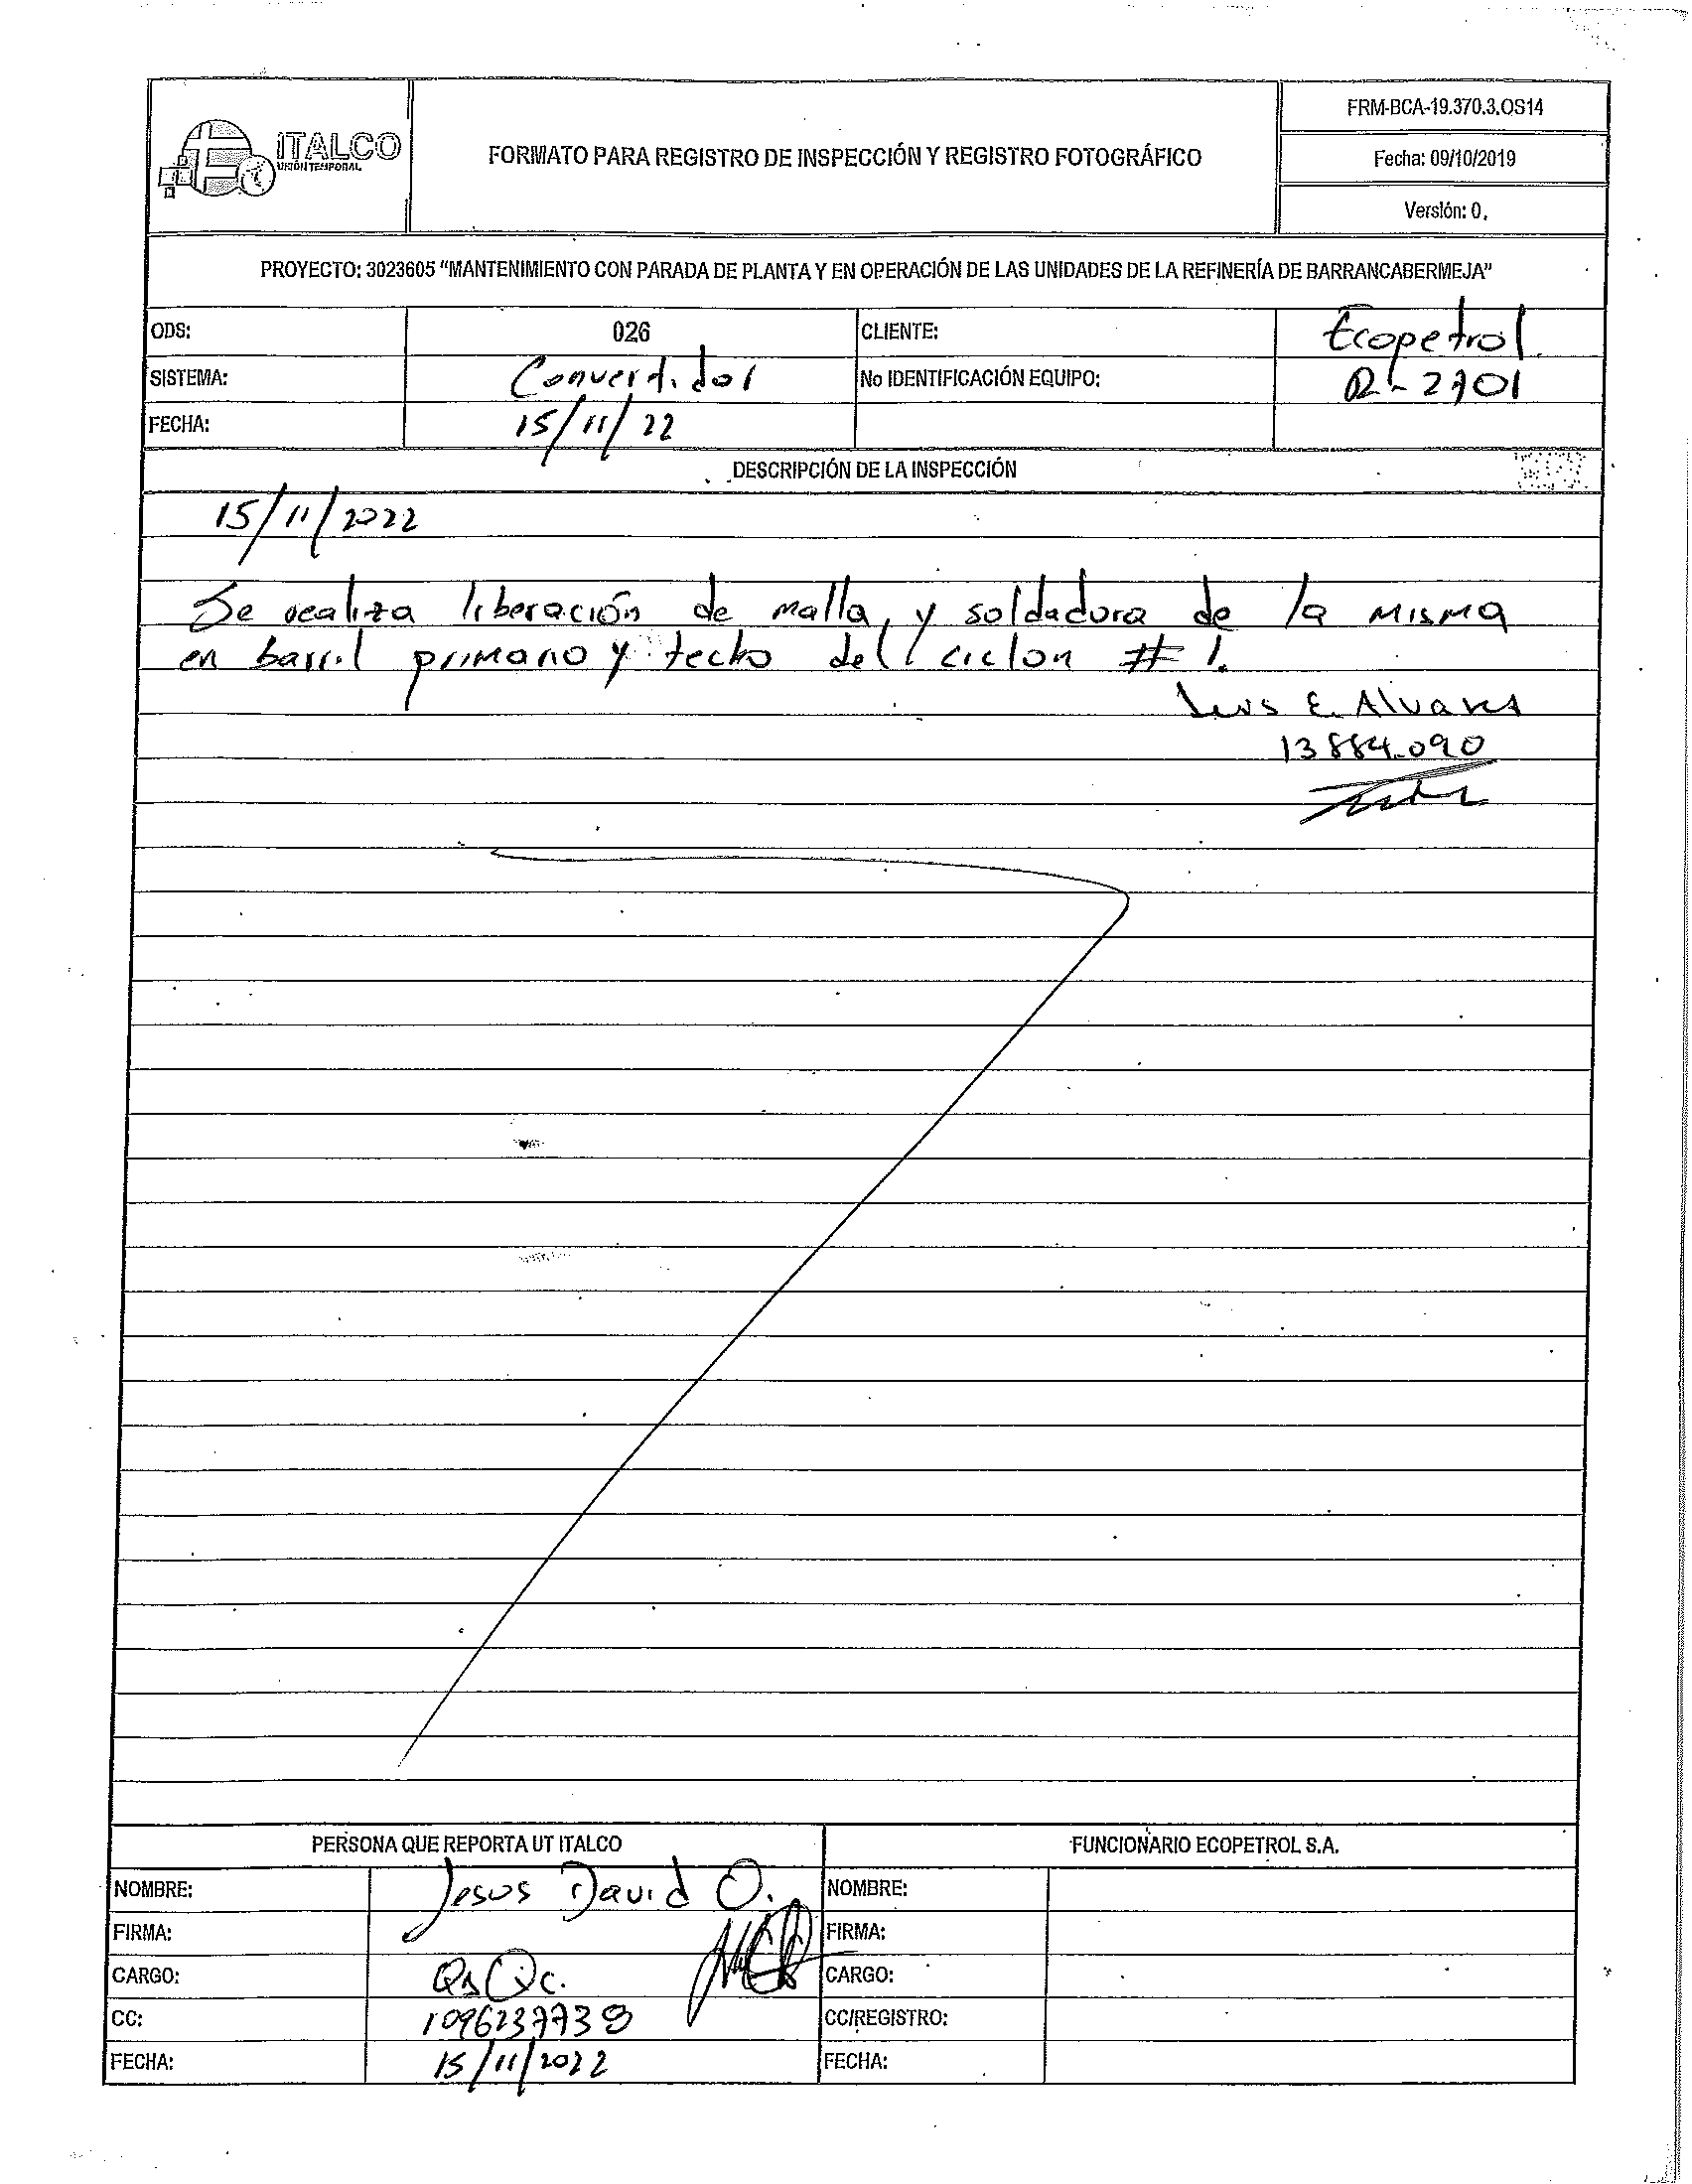 ITALCO
UNIÓN TEMPORAL
FORMATO PARA REGISTRO DE INSPECCIÓN Y REGISTRO FOTOGRÁFICO
FRM-BCA-19.370.3.OS14
Fecha: 09/10/2019
Versión: 0.
PROYECTO: 3023605 “MANTENIMIENTO CON PARADA DE PLANTA Y EN OPERACIÓN DE LAS UNIDADES DE LA REFINERÍA DE BARRANCABERMEJA”
ODS: 026 CLIENTE: Ecopetrol.
SISTEMA: Convertidor No IDENTIFICACIÓN EQUIPO: R-2701
FECHA: 15/11/22
DESCRIPCIÓN DE LA INSPECCIÓN
15/11/2022
Se realiza liberación de malla, y soldadura de la misma
en barril primario y techo del ciclon # 1.
Luis E. Alvares
13884.090
PERSONA QUE REPORTA UT ITALCO FUNCIONARIO ECOPETROL S.A.
NOMBRE: Jesus David O. NOMBRE:
FIRMA: FIRMA:
CARGO: Qa Qc. CARGO:
CC: 1096237738 CC/REGISTRO:
FECHA: 15/11/2022 FECHA: